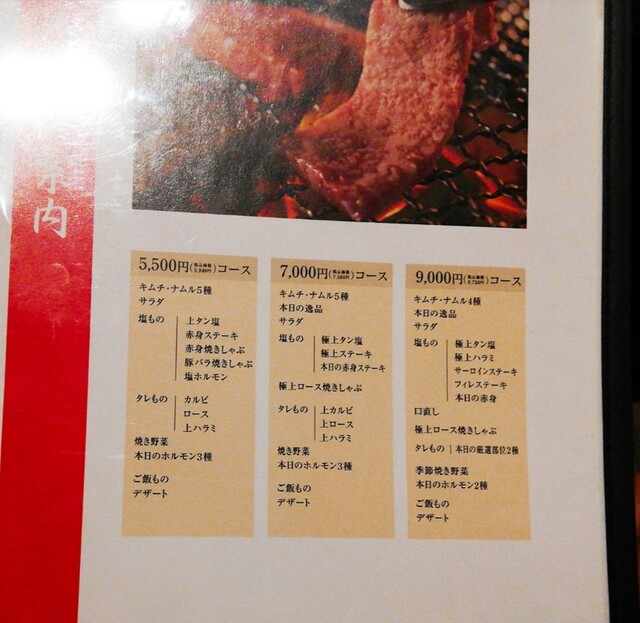 内
5,500円(税込価格 5,940円)コース
キムチ・ナムル5種
サラダ
塩もの
上タン塩
赤身ステーキ
赤身焼きしゃぶ
豚バラ焼きしゃぶ
塩ホルモン
タレもの
カルビ
ロース
上ハラミ
焼き野菜
本日のホルモン3種
ご飯もの
デザート
7,000円(税込価格 7,560円)コース
キムチ・ナムル5種
本日の逸品
サラダ
塩もの
極上タン塩
極上ステーキ
本日の赤身ステーキ
極上ロース焼きしゃぶ
タレもの
上カルビ
上ロース
上ハラミ
焼き野菜
本日のホルモン3種
ご飯もの
デザート
9,000円(税込価格 9,720円)コース
キムチ・ナムル4種
本日の逸品
サラダ
塩もの
極上タン塩
極上ハラミ
サーロインステーキ
フィレステーキ
本日の赤身
口直し
極上ロース焼きしゃぶ
タレもの 本日の厳選部位2種
季節焼き野菜
本日のホルモン2種
ご飯もの
デザート